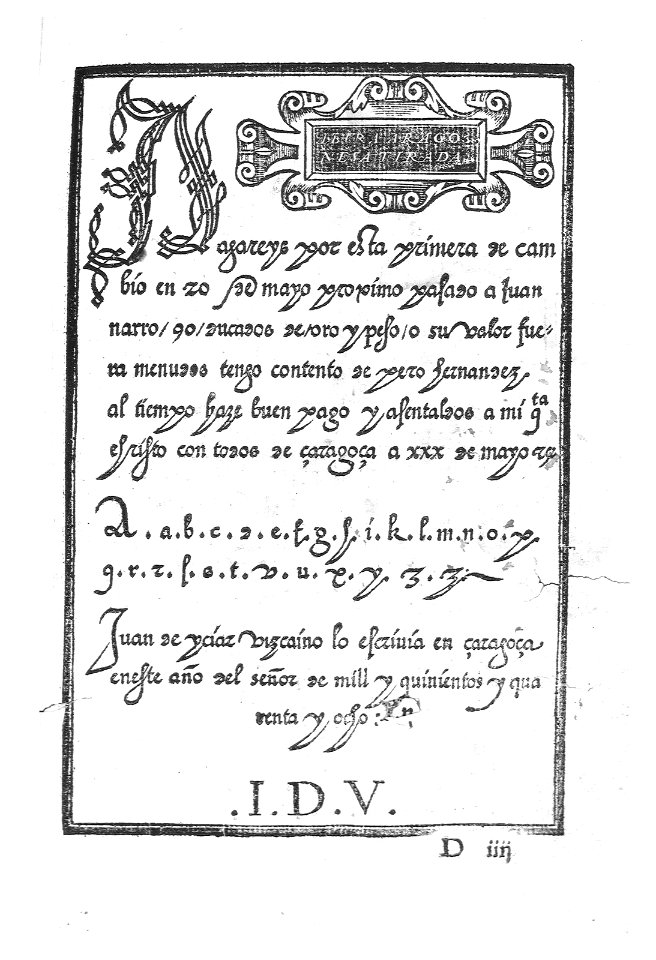 LETRA ARAGO
NESA TIRADA.
Pagareys por esta primera de cam
bio en 20 de mayo proximo pasado a Juan
narro/90/ducados de/oro y peso/o su valor fue-
ra menudos tengo contento de pero hernandez
al tiempo haze buen pago y asentaldos a mi q^ta
escristo con todos de çaragoça a xxx de mayo
A.a.b.c.d.e.f.g.h.i.k.l.m.n.o.p.
q.r.z.s.s.t.v.u.x.y.z.z.
Juan de yciar vizcaino lo escrivia en çaragoça
eneste año del señor de mill y quinientos y qua
renta y ocho
.I.D.V.
D iiij